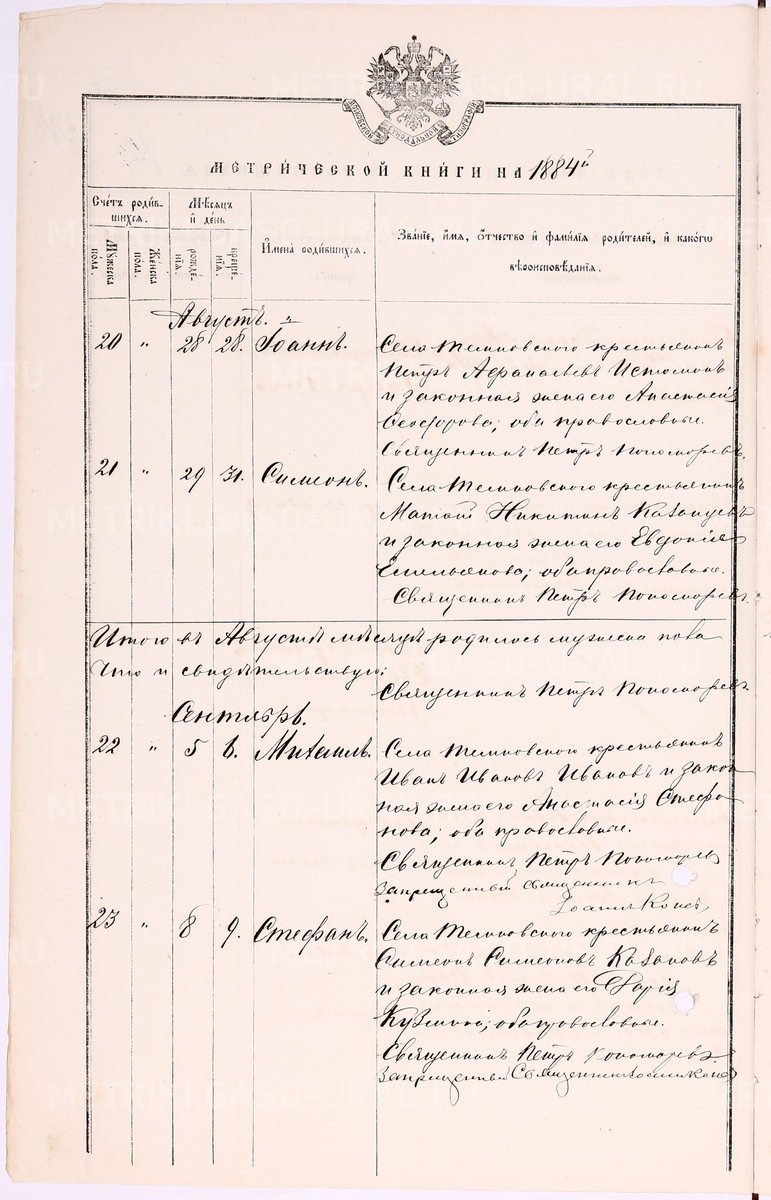 МЕТРИ́ЧЕСКОЙ КНИ́ГИ НА 1884й
Счетъ роди́в-
шихся.
Мꙋжеска
по́ла.
Женска
по́ла.
Мѣ́сяцъ
и҆ де́нь
рожде́-
нїя.
креще́-
нїя.
И҆мена̀ роди́вшихся.
Зва́нїе, и҆́мя, о҆́тчество и҆ фами́лїя роди́телей, и҆ како́гѡ
вѣроисповѣ́данїя.
Августъ.
20 " 28 28. Іоаннъ. Села Темновского крестьянинъ
Петръ Афанасьевъ Истоминъ
и законная жена его Анастасія
Феофорова; оба провословные.
Священникъ Петръ Пономоревъ.
21 " 29 31. Симеонъ. Села Темновского крестьянинъ
Матѳій Никитинъ Казанцевъ
и законная жена его Евдокія
Емельянова; оба провословные.
Священникъ Петръ Пономоревъ.
Итого въ Августѣ мѣсяцѣ родилось мужеска пола
Что и свидѣтельствую:
Священникъ Петръ Пономоревъ.
Сентябрь.
22 " 5 6. Михаилъ. Села Темновского крестьянинъ
Иванъ Ивановъ Ивановъ и закон
ная жена его Анастасія Стефа
нова; оба провословные.
Священникъ Петръ Пономоревъ
Запрещенный священникъ
23 " 8 9. Стефанъ. Села Темновского крестьянинъ
Симеонъ Симеоновъ Казаковъ
и законная жена его Дарія
Кузмина; оба провословные.
Священникъ Петръ Пономоревъ.
Запрещенный Священникъ